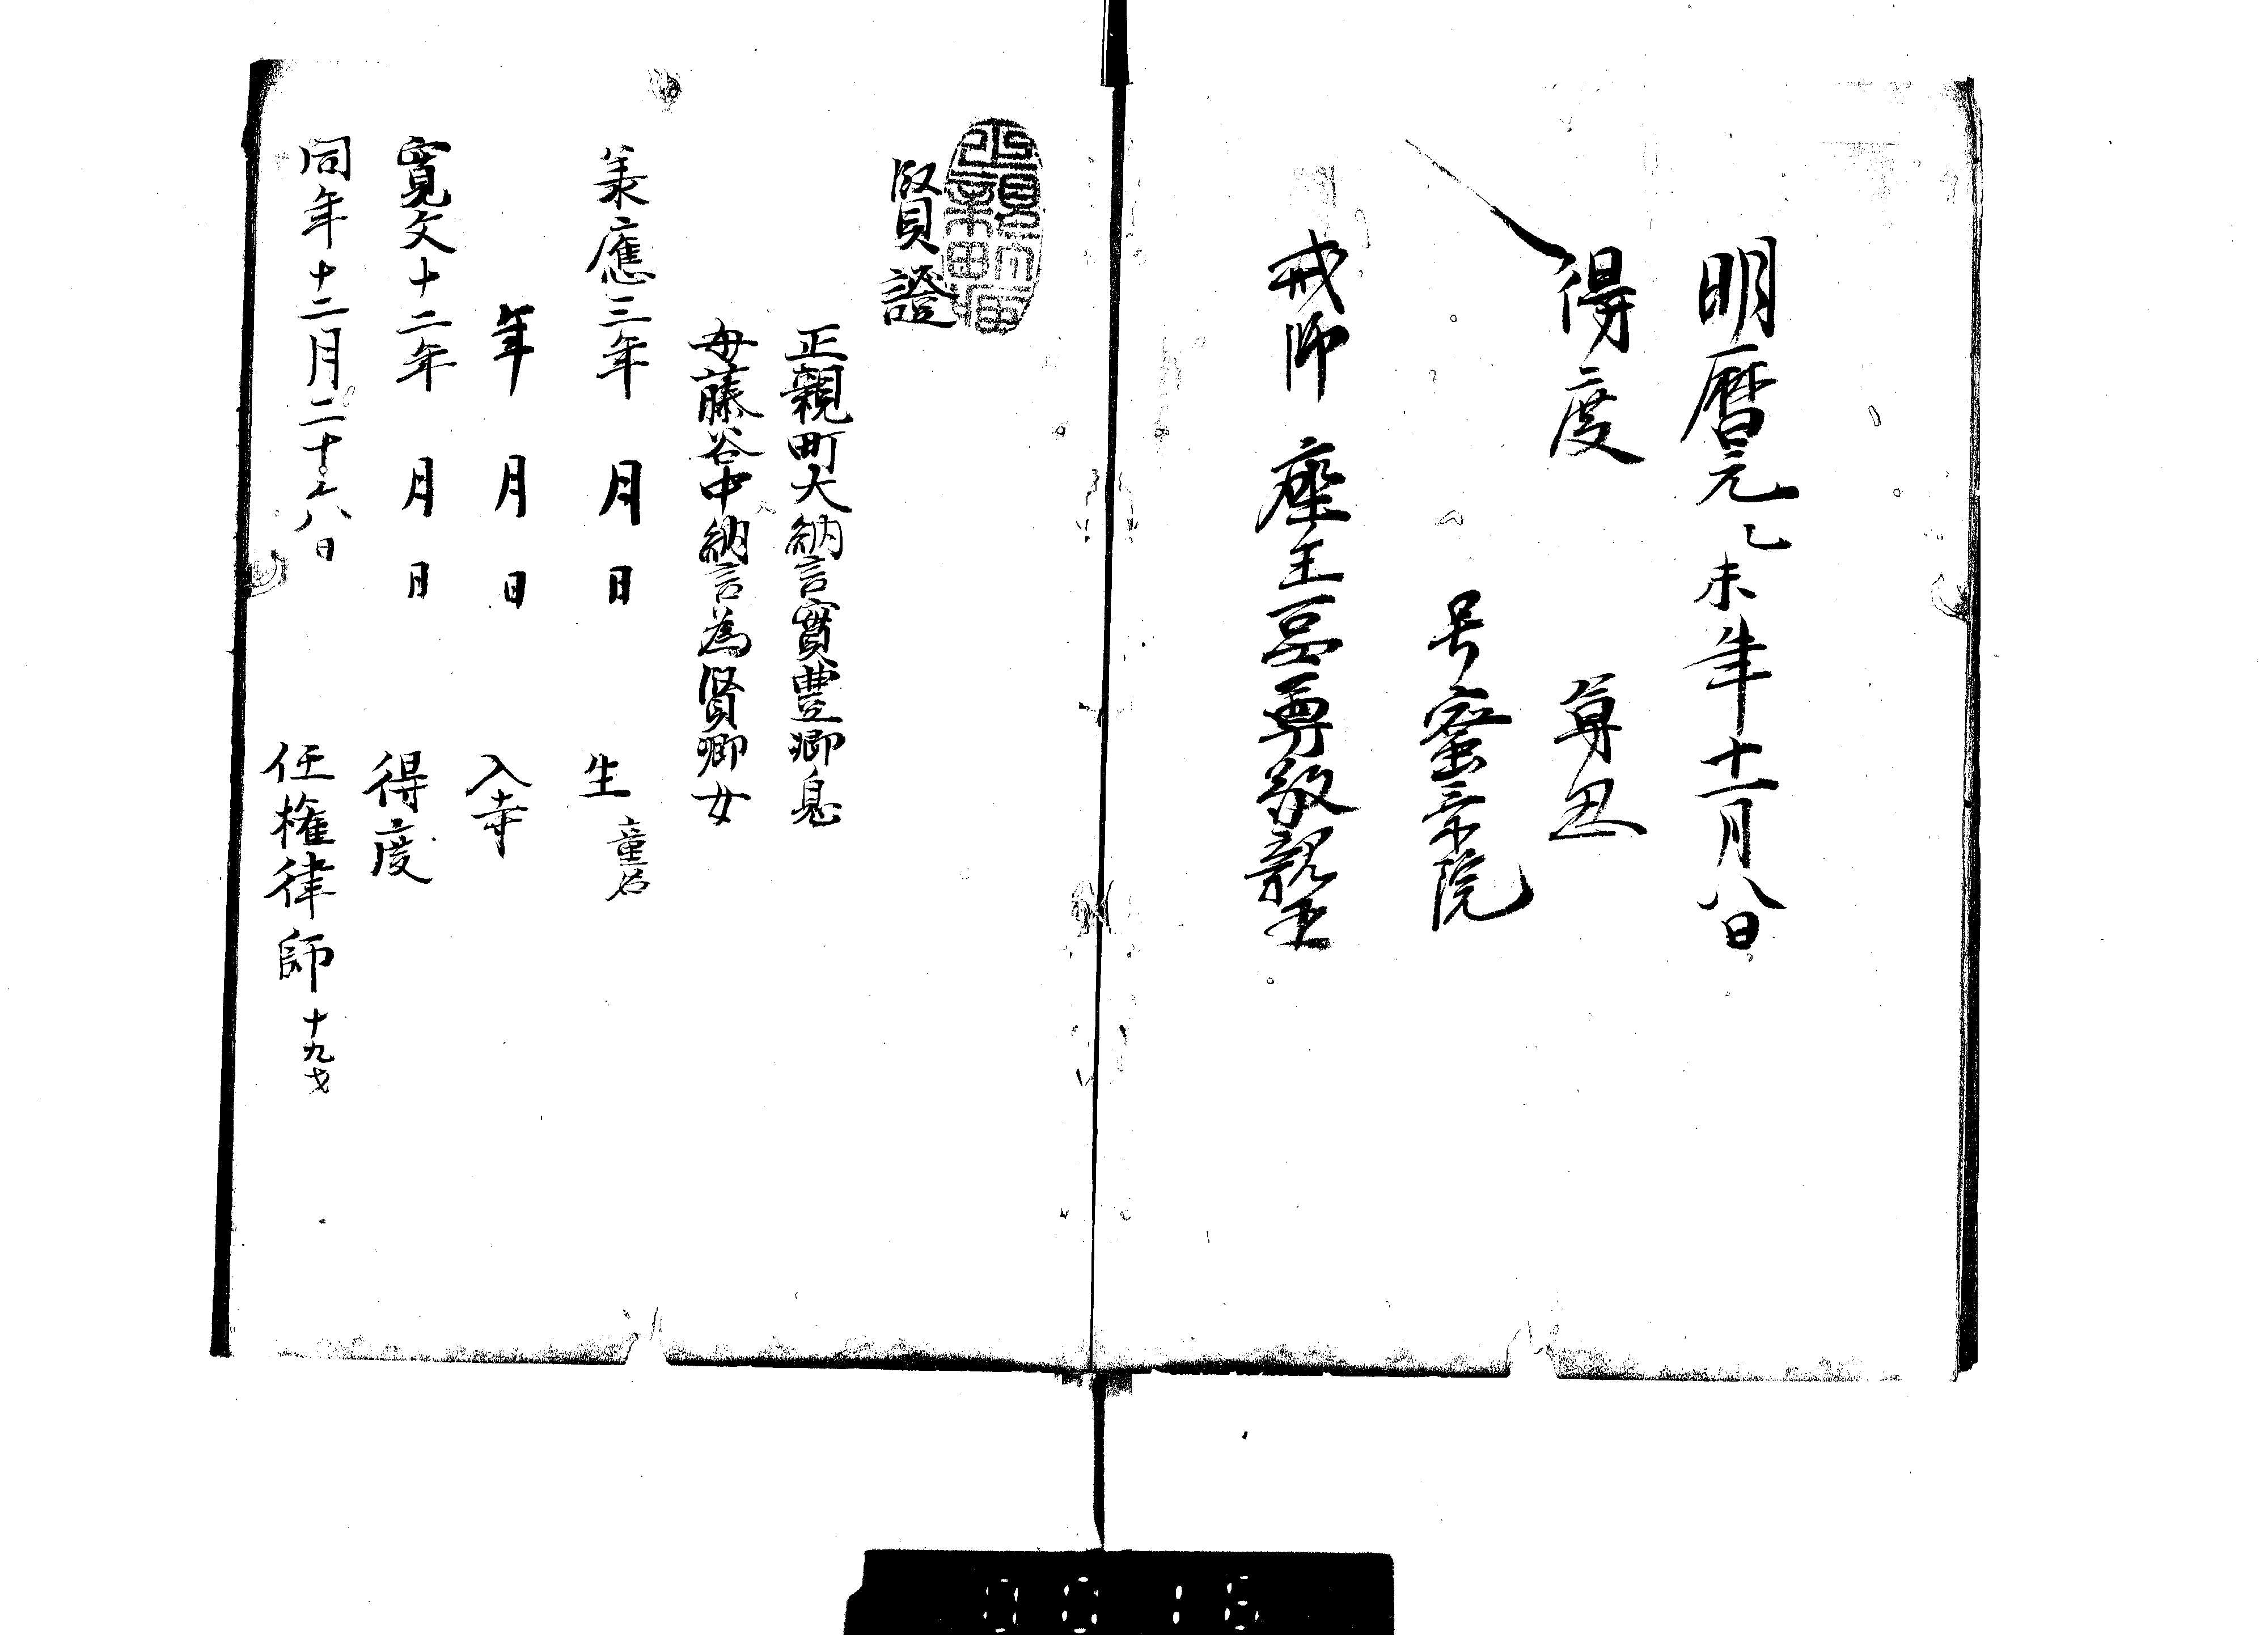 明暦元乙未年十一月八日
得度 尊
号蜜院
戒師 座主二品尊敬親王
賢證
正親町大納言實豊卿息
母藤谷中納言為賢卿女
承應三年 月 日 生 童名
年 月 日 入寺
寛文十二年 月 日 得度
同年十二月二十八日 任権律師 十九才